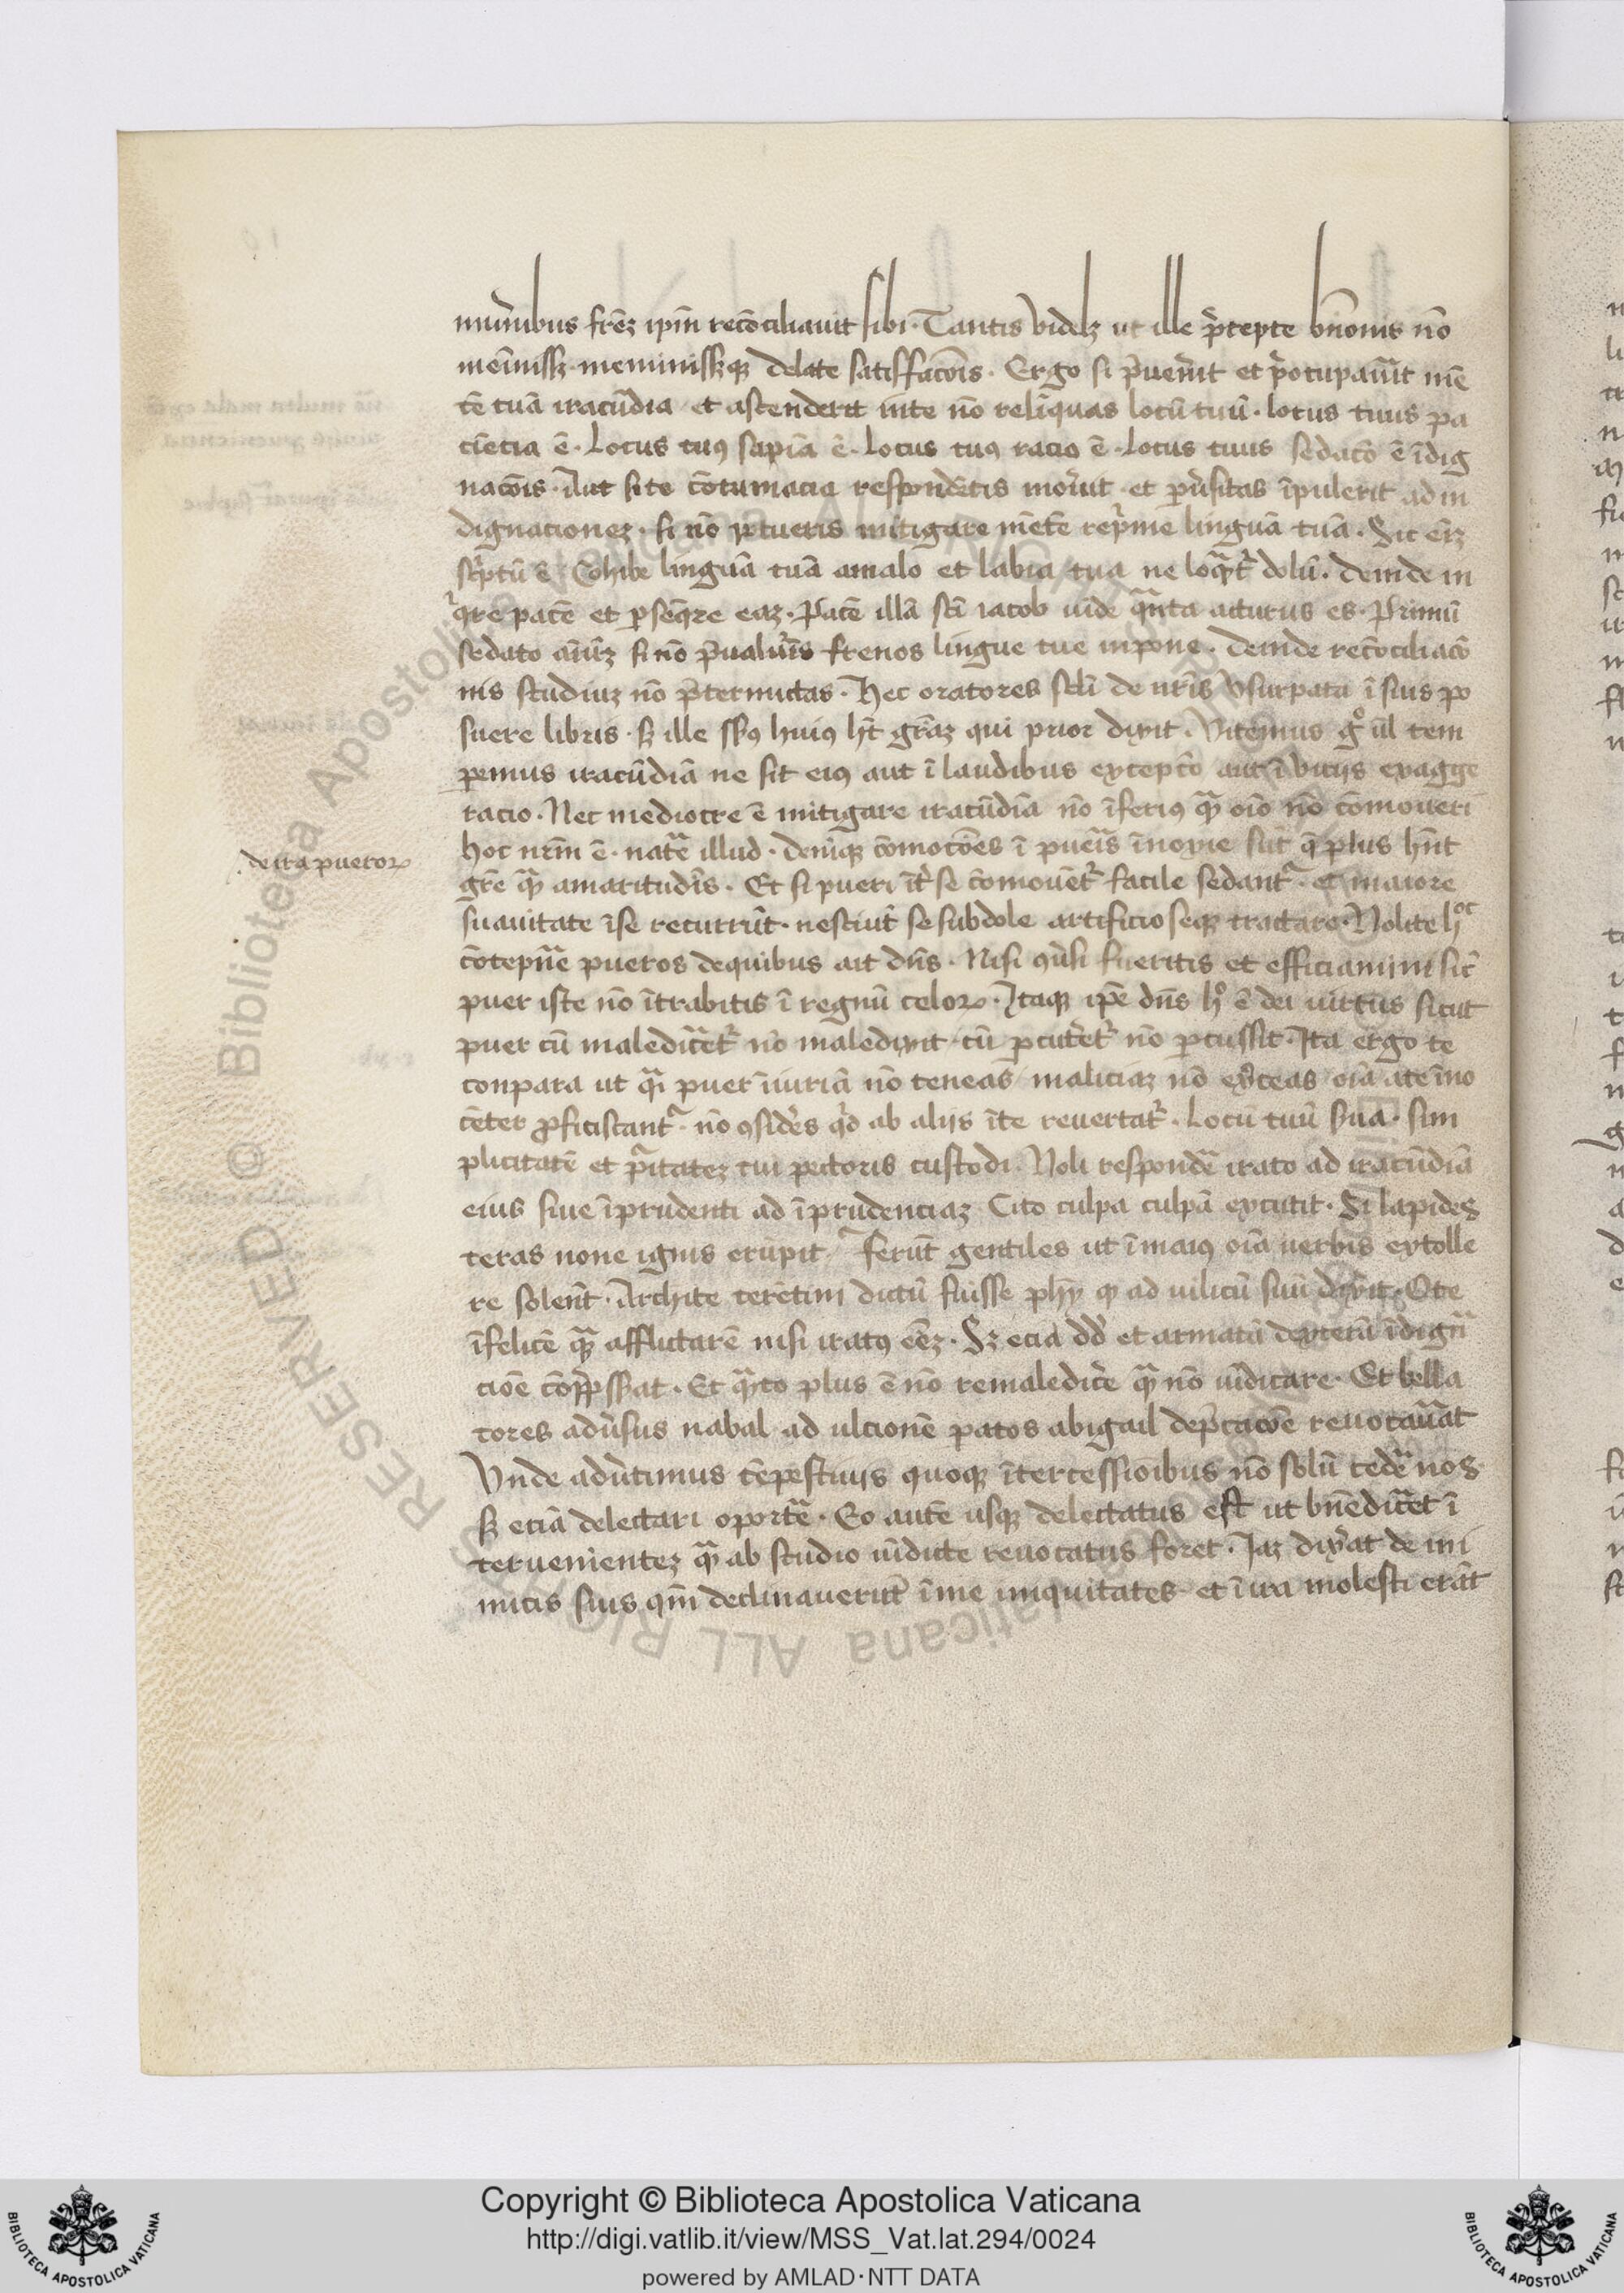 mun̄ibus frēz ip̄m recōciliauit sibi · Tantis videlz ut ille p̄cepte bn̄onis nō
mēīnissz · meminissꝫqꝫ delate satisfacōis · Ergo si p̄uen̄it et p̄ocupau̅it mē
tē tuā iracūdia et ascenderit inte nō relīquas locū tuū · locus tuus pa
cīetia ē · Locus tuꝰ sapīa ē · Locus tuꝰ racio ē · Locus tuus sedacō ē īdig
nacōis · Aut si te cōtumacia respondētis mou̅it · et pu̅sitas īpulerit ad in
dignacionez · si nō potueris mitigare mētē rep̄me linguā tuā · Sic eīz
sc̄ptū ē Cohibe linguā tuā amalo et labia tua ne loq̄nt̄ dolū · deinde in
q̄re pacē et ꝑseq̄re eaz · Pacē illā sc̄i iacob uide q̄nta aiturus es · Primū
sedato aīuz si nō p̄ualu̅is frenos lingue tue inpone · deinde recōciliacō
nis studiuz nō p̄termictas · Hec oratores scl̄i de nr̄is vsurpata ī suis po
suere libris · sꝫ ille ss̄ꝰ huiꝰ ht̄ gr̄az qui prior dixit · Vitemus gͦ ul̄ tem
pemus iracūdiā ne sit eiꝰ aut ī laudibus exceptō aut ī vitijs exagge
racio · Nec mediocre ē mitigare iracūdiā nō īferiꝰ q̄ oīo nō cōmoueri
hoc nr̄m ē · nat̄e illud · deniqꝫ cōmocōes ī pueīs īnoxie sūt q̄ plus hn̄t
gr̄e q̄ amaritudīs · Et si pueri īt̄ se cōmouēt̄ facile sedant̄ · et maiore
suauitate īse recurrūt · nesciūt se subdole artificioseqꝫ tractare · Nolite hoc
de ita pueroꝝ
cōtepn̄e pueros dequibus ait dn̄s · Nisi ꝯu̅si fueritis et efficiamini sic̄
puer iste nō ītrabitis ī regnū celoꝝ · Itaqꝫ ip̄e dn̄s hͦ ē dei uirtus sicut
puer cū maledic̄et̄ nō maledixit · cū ꝑcutet̄ nō ꝑcussit · Ita ergo te
conpara ut q̄i puer īiuriā nō teneas maliciaz nō exc̄eas oīa ate īno
cēter ꝓficiscant̄ · nō ꝯsidēs q̄d ab aliis īte reuertat̄ · Locū tuū s̄ua · sim
plicitatē et p̄itatez tui pectoris custodi · Noli respond̄e irato ad iracūdiā
eius siue īprudenti ad īprudenciaz Cito culpa culpā excutit · Si lapides
teras none ignis erūpit · Ferūt gentiles ut ī maiꝰ oīa uerbis extolle
re solēnt · Archite terētini dictū fuisse phȳ qͥ ad uilicū suū dixit · O te
īfelicē q̄ afflictarē nisi iratꝰ eēz · Sz eciā dd̄ et armatā dexterā īdign̄a
cioē cōp̄ssat · Et q̄nto plus ē nō remaledic̄e q̄ nō uīdicare · Et bella
tores adu̅sus nabal ad ulcionē patos abigail dep̄cacōe reuocau̅at
Vnde adu̅timus tēpestiuis quoqꝫ ītercessioībus nō solū ced̄e nos
sꝫ eciā delectari oport̄e · Eo autē usqꝫ delectatus est ut bn̄edic̄et ī
teruenientez q̄ ab studio uīdicte reuocatus foret · Iaz dix̄at de ini
micis suis qm̄ declinauerūt īme iniquitates · et ī ira molesti erāt
Copyright © Biblioteca Apostolica Vaticana
http://digi.vatlib.it/view/MSS_Vat.lat.294/0024
powered by AMLAD·NTT DATA